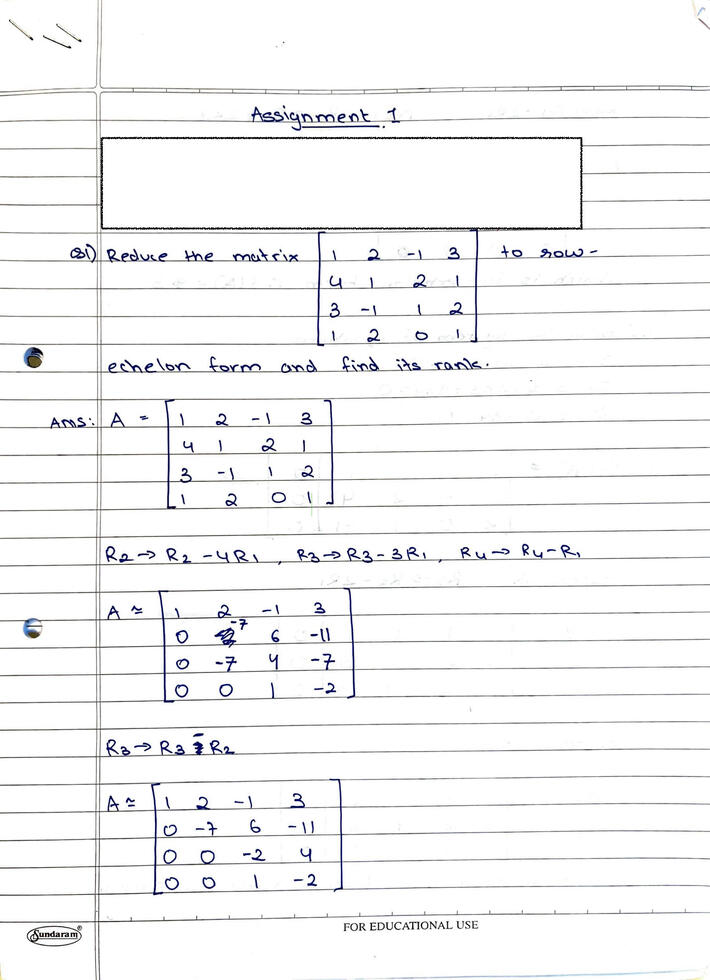 Assignment 1
Q1) Reduce the matrix [ 1 2 -1 3 ] to row-
4 1 2 1
3 -1 1 2
1 2 0 1
echelon form and find its rank.
Ans: A = [ 1 2 -1 3 ]
4 1 2 1
3 -1 1 2
1 2 0 1
R2 → R2 - 4R1 , R3 → R3 - 3R1 , R4 → R4 - R1
A ≃ [ 1 2 -1 3 ]
0 -7 6 -11
0 -7 4 -7
0 0 1 -2
R3 → R3 - R2
A ≃ [ 1 2 -1 3 ]
0 -7 6 -11
0 0 -2 4
0 0 1 -2
Sundaram®
FOR EDUCATIONAL USE